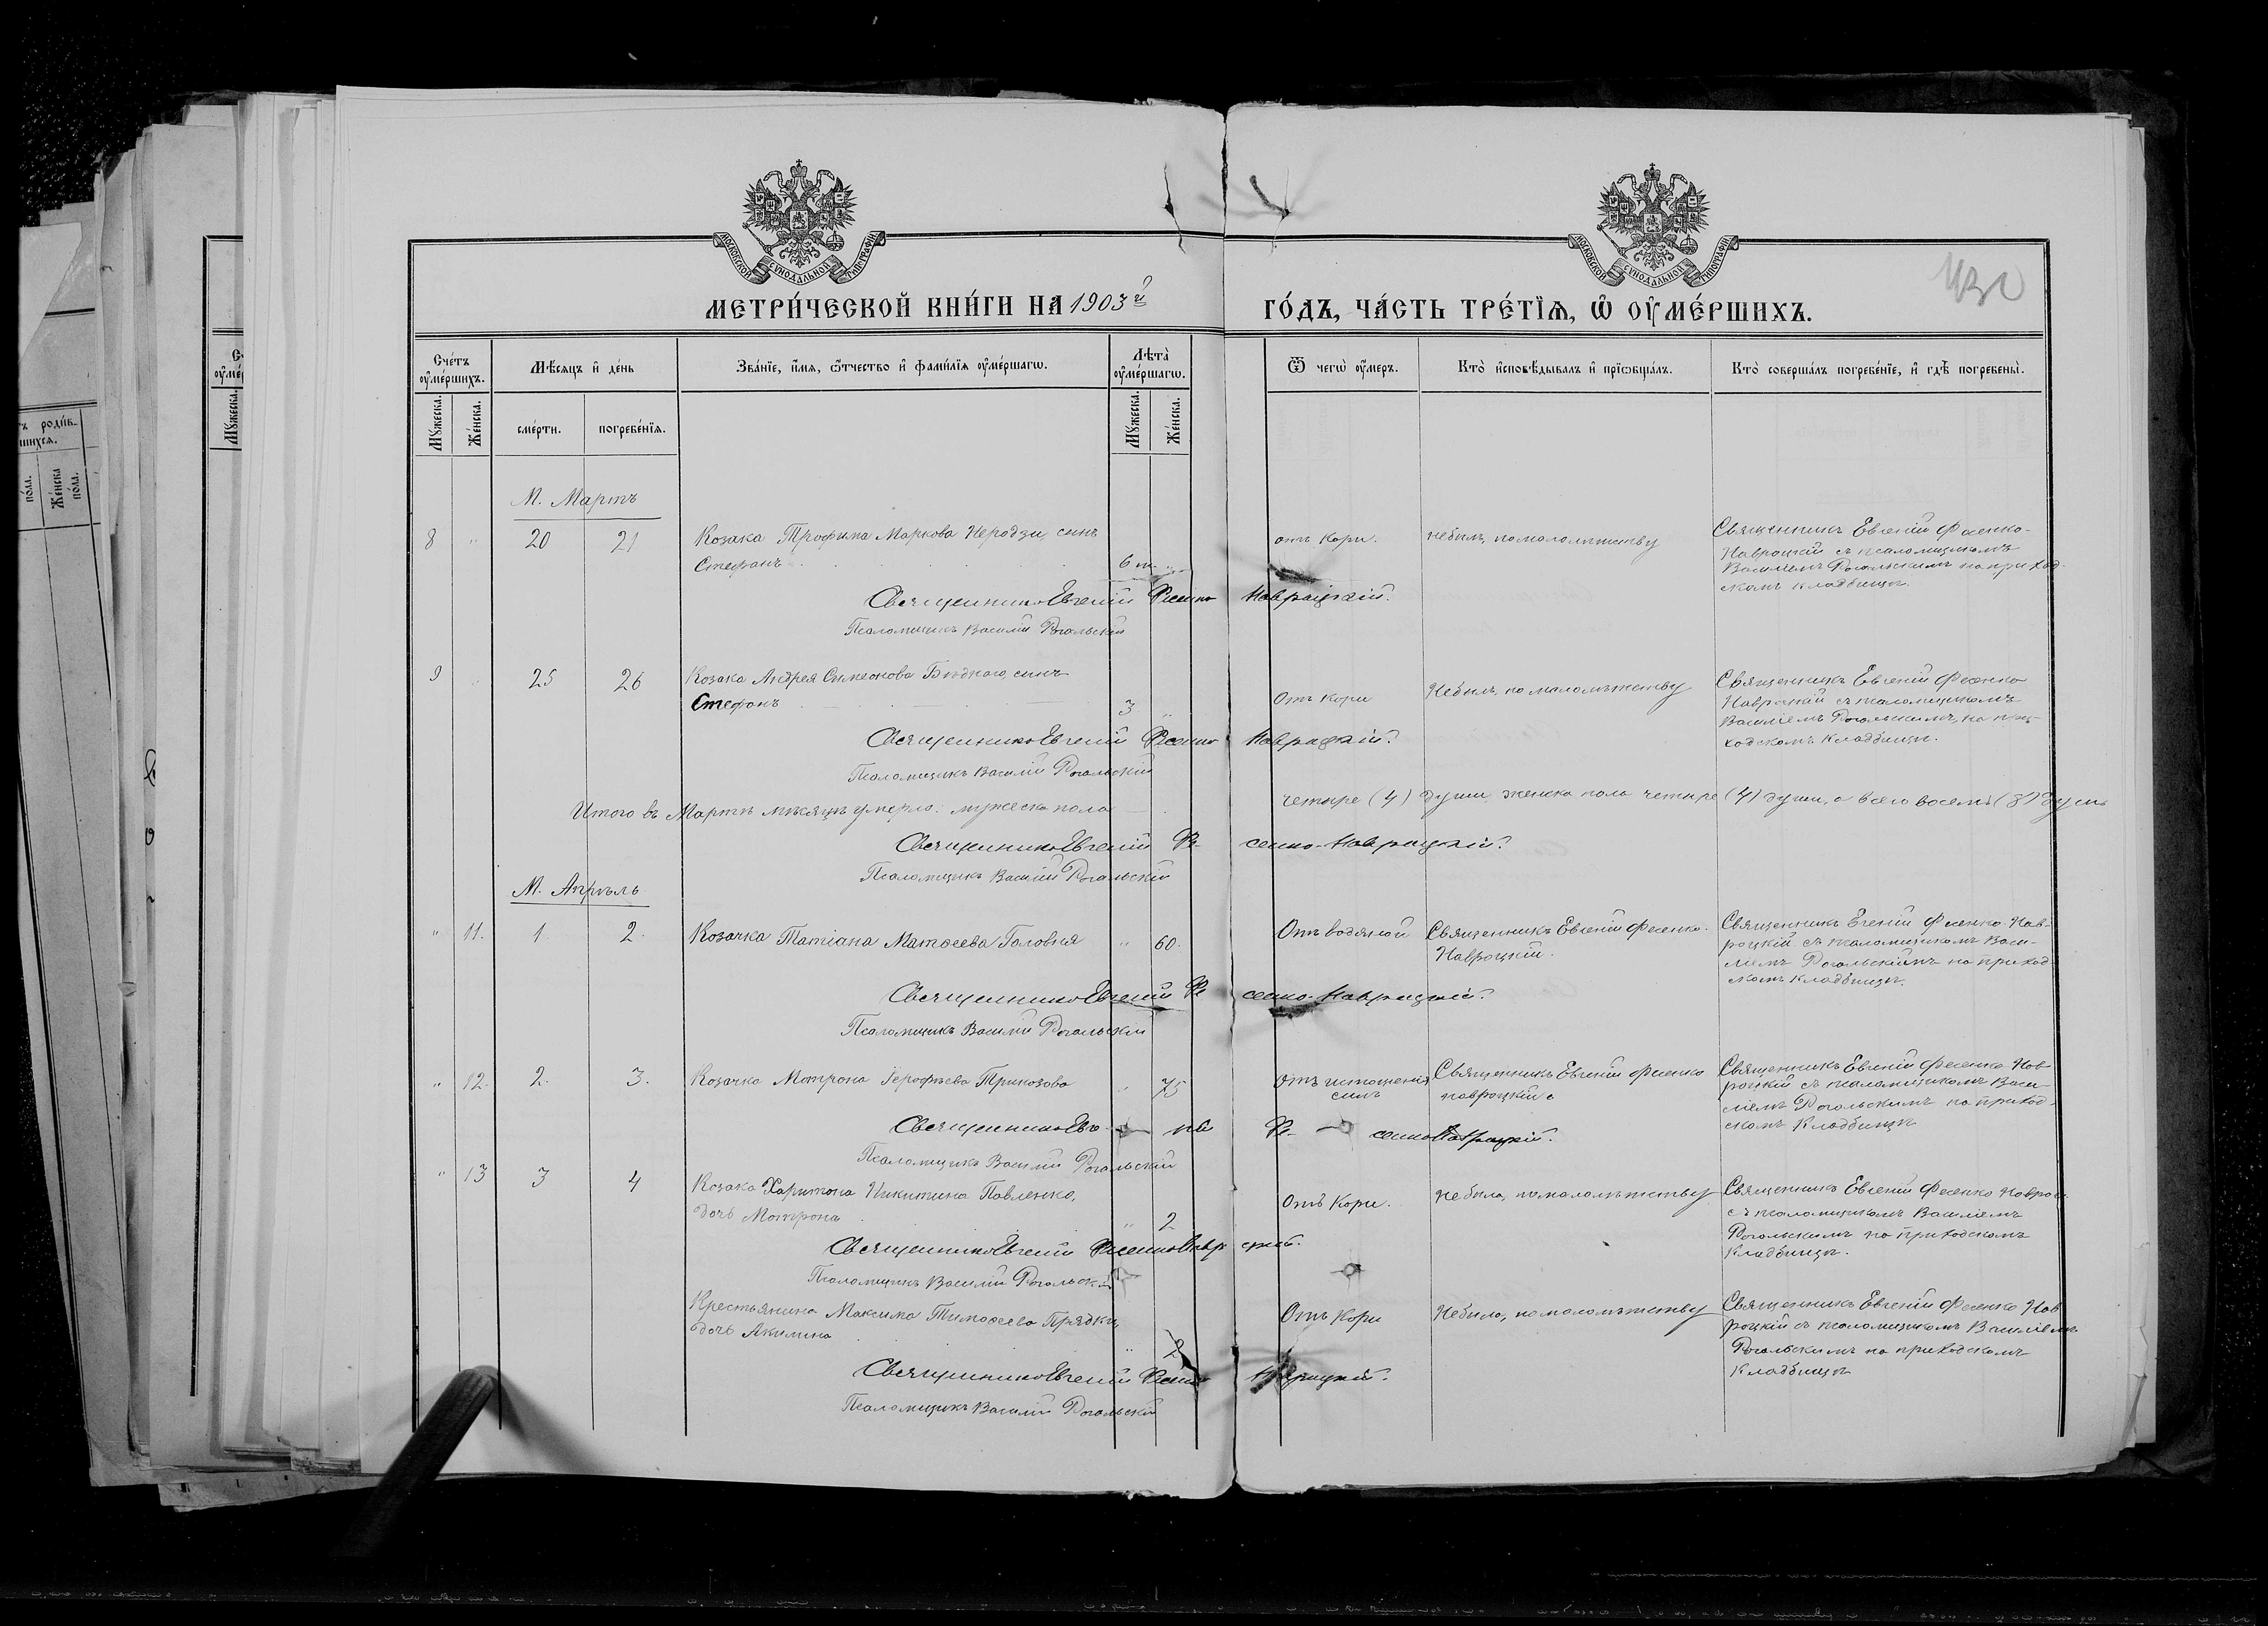 МОСКОВСКОЙ СѴНОДАЛЬНОЙ ТИПОГРАФІИ
МОСКОВСКОЙ СѴНОДАЛЬНОЙ ТИПОГРАФІИ
МЕТРИ́ЧЕСКОЙ КНИ́ГИ НА 1903й ГО́ДЪ, ЧА́СТЬ ТРЕ́ТІѦ, Ѽ ОУ҆МЕ́РШИХЪ.
Сче́тъ оу҆ме́ршихъ.
Мѣ́сяцъ и҆ де́нь
Зва́нїе, и҆́мѧ, ѻ҆́тчество и҆ фами́лїѧ оу҆ме́ршагѡ.
Лѣта̀ оу҆ме́ршагѡ.
Ѿ чегѡ̀ оу҆́меръ.
Кто̀ и҆сповѣ́дывалъ и҆ прїѡбща́лъ.
Кто̀ соверша́лъ погребе́нїе, и҆ гдѣ̀ погребены̀.
Мꙋ́жеска.
Же́нска.
сме́рти.
погребе́нїѧ.
Мꙋ́жеска.
Же́нска.
М. Мартъ
8 " 20 21 Козака Трофима Маркова сынъ
Стефанъ 6 м. "
отъ кори.
небылъ, по малолѣтству
Священникъ Евгеній Фесенко-
Навроцкій съ псаломщикомъ
Василіемъ Рогальскимъ на приход-
скомъ кладбищѣ.
Священникъ Евгеній Фесенко Навроцкій.
Псаломщикъ Василій Рогальскій
9 " 25 26 Козака Андрея Симеонова Бѣднаго, сынъ
Стефанъ 3 "
Отъ кори
Небылъ, по малолѣтству
Священникъ Евгеній Фесенко
Навроцкій съ псаломщикомъ
Василіемъ Рогальскимъ, на при-
ходскомъ кладбищѣ.
Священникъ Евгеній Фесенко Навроцкій.
Псаломщикъ Василій Рогальскій
Итого въ Мартѣ мѣсяцѣ умерло: мужеска пола четыре (4) души, женска пола четыре (4) души, а всего восемь (8) душъ
Священникъ Евгеній Фесенко-Навроцкій.
Псаломщикъ Василій Рогальскій
М. Апрѣль
" 11. 1. 2. Козачка Татіана Матѳеева Головня " 60.
Отъ водяной
Священникъ Евгеній Фесенко-
Навроцкій.
Священникъ Евгеній Фесенко-Нав-
роцкій съ псаломщикомъ Васи-
ліемъ Рогальскимъ на приход-
скомъ кладбищѣ.
Священникъ Евгеній Фесенко-Навроцкій.
Псаломщикъ Василій Рогальскій
" 12. 2. 3. Козачка Мотрона Іерофѣева " 75
Отъ истощенія
силъ
Священникъ Евгеній Фесенко
Навроцкій
Священникъ Евгеній Фесенко Нав-
роцкій съ псаломщикомъ Васи-
ліемъ Рогальскимъ на приход-
скомъ кладбищѣ
Священникъ Евгеній Фесенко Навроцкій.
Псаломщикъ Василій Рогальскій
" 13 3 4 Козака Харитона Никитина Павленко,
дочь Мотрона " 2
Отъ Кори.
Не была, по малолѣтству
Священникъ Евгеній Фесенко Навроц.
съ псаломщикомъ Василіемъ
Рогальскимъ на приходскомъ
кладбищѣ.
Священникъ Евгеній Фесенко Навроцкій.
Псаломщикъ Василій Рогальскій
Крестьянина Максима Тимоѳеева Прядки,
дочь Акилина " 2
Отъ Кори
Не была, по малолѣтству
Священникъ Евгеній Фесенко Нав-
роцкій съ псаломщикомъ Василіемъ
Рогальскимъ на приходскомъ
кладбищѣ
Священникъ Евгеній Фесенко Навроцкій.
Псаломщикъ Василій Рогальскій